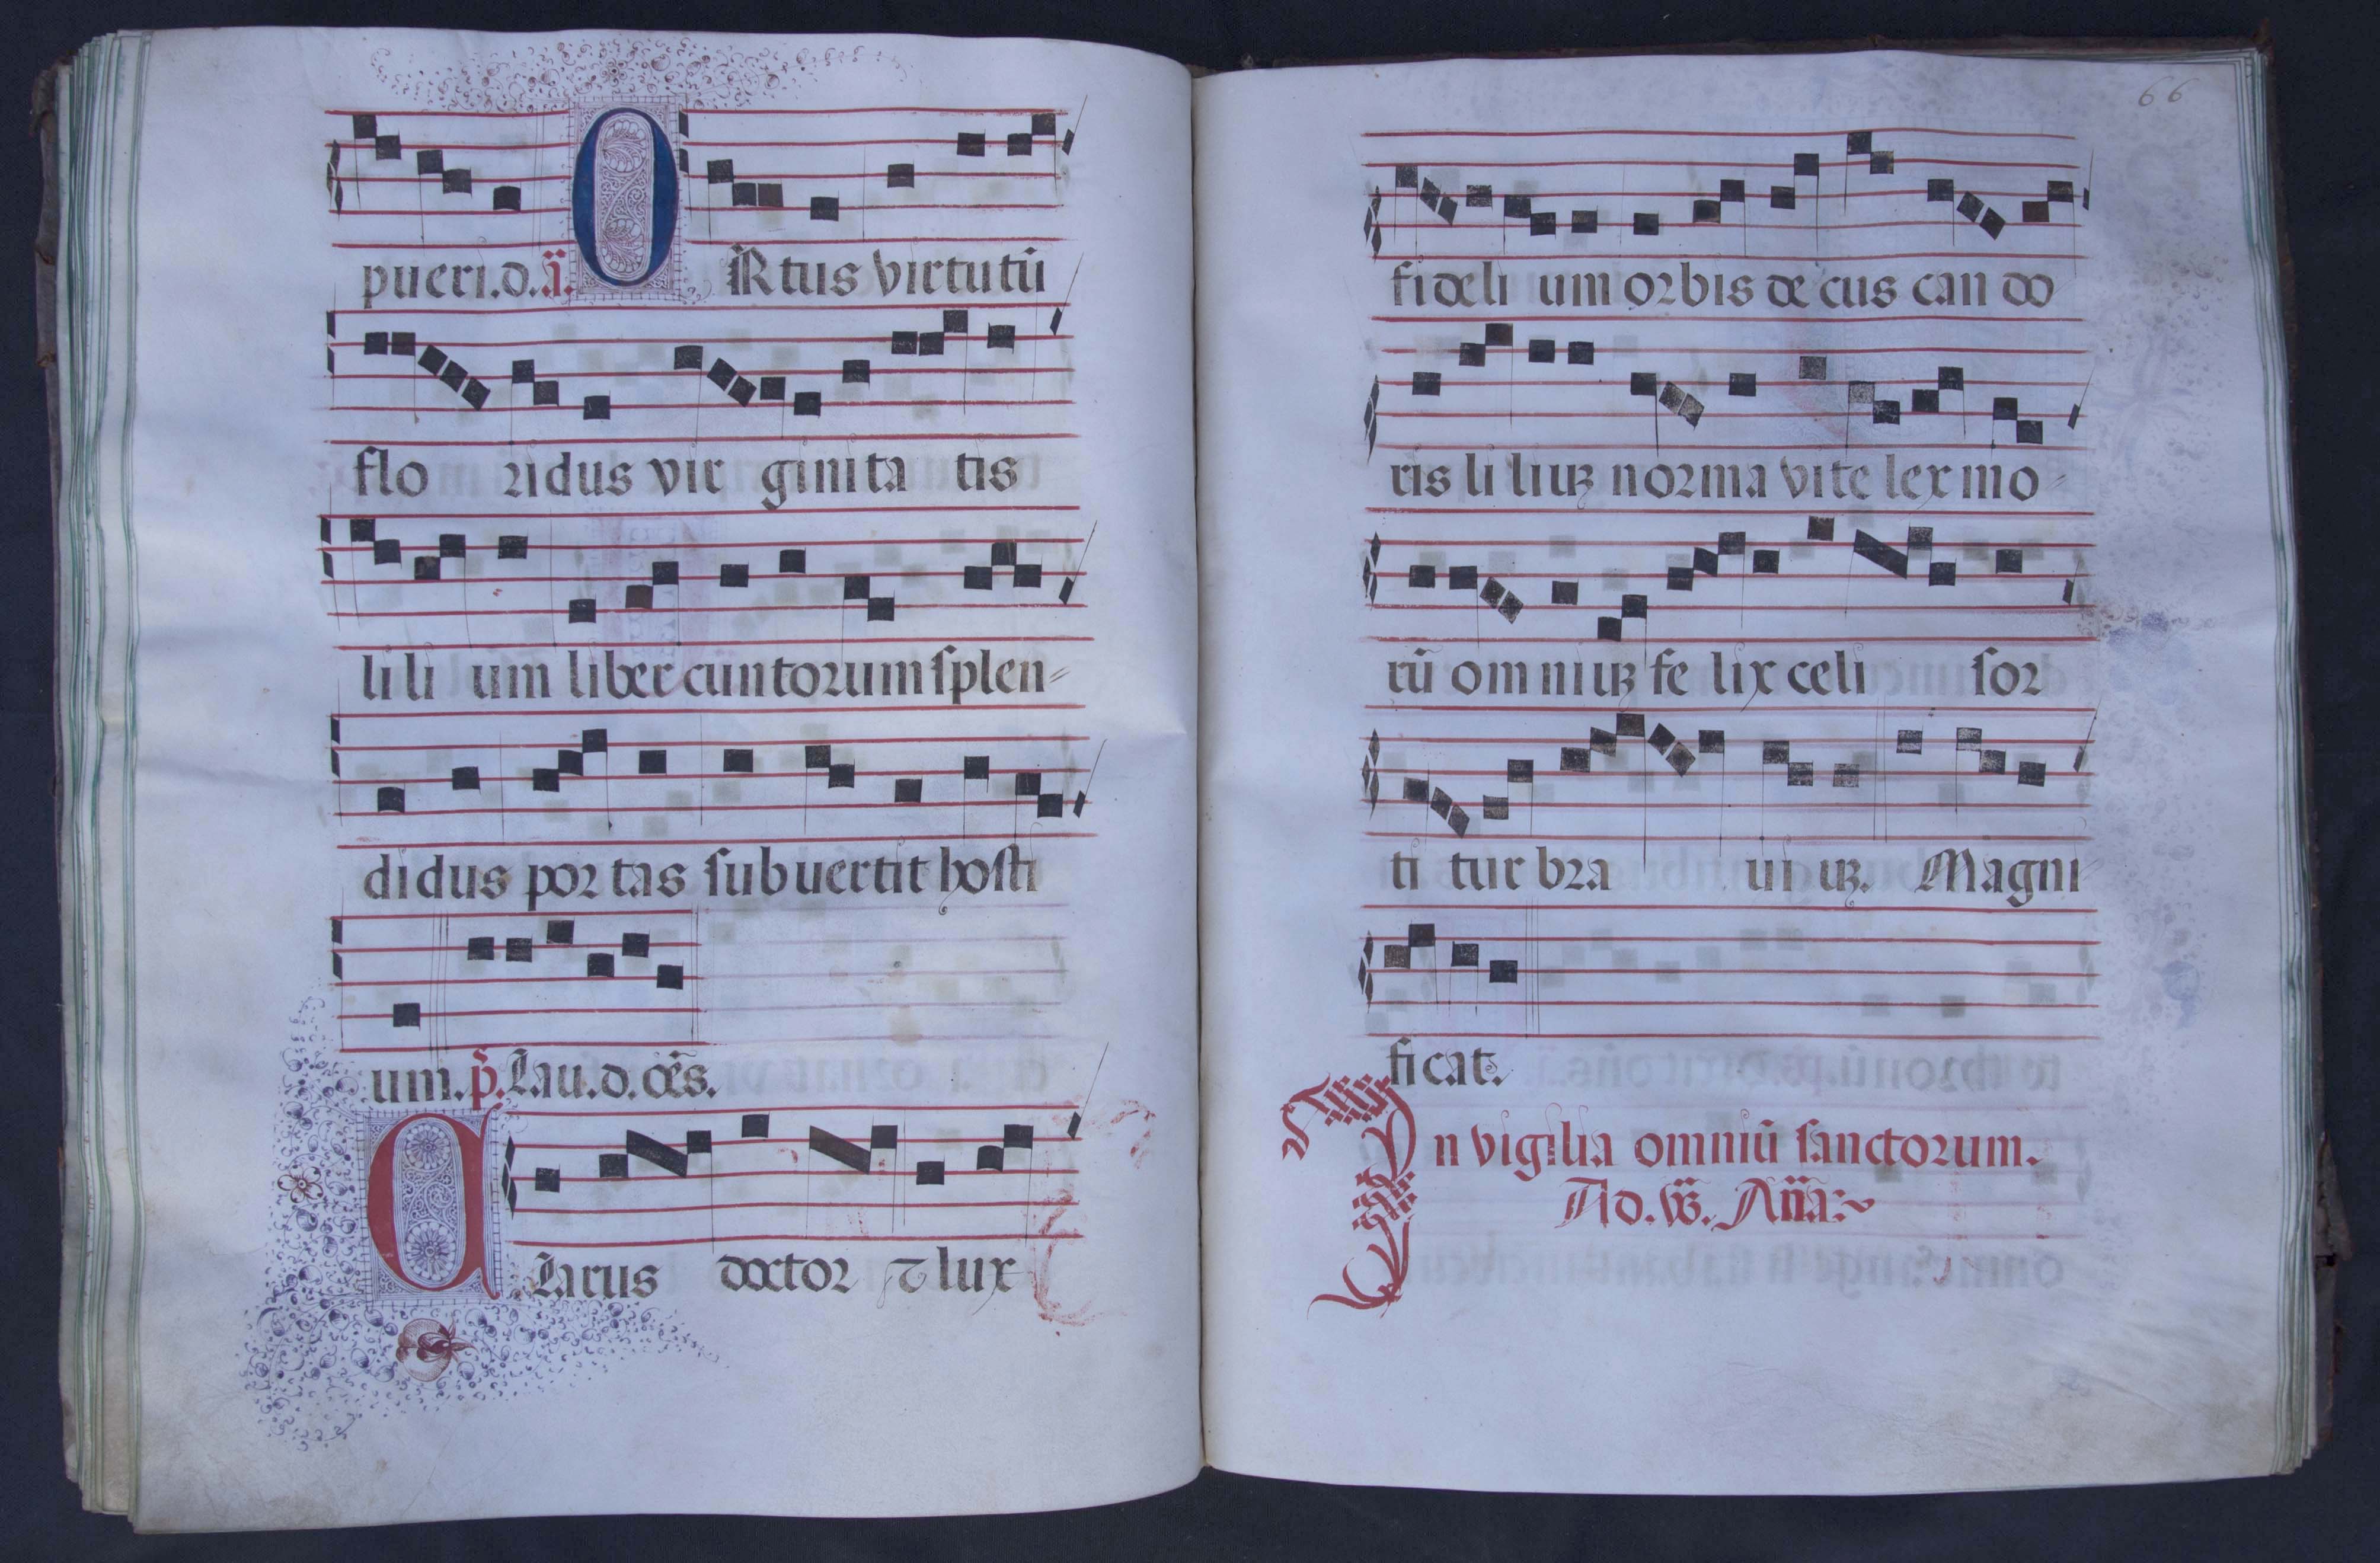 pueri.d. ā. ORtus virtutū
flo ridus vir ginita tis
lili um liber cuntorum splen-
didus por tas subuertit hosti
um. p̄. Lau.d.oēs.
CLarus doctor ⁊ lux
66
fideli um orbis de cus can do
ris li liuꝫ norma vite lex mo-
rū om niuꝫ fe lix celi sor
ti tur bra ui uꝫ. Magni-
ficat.
In vigilia omniū sanctorum.
Ad. vs̄. Añā:~